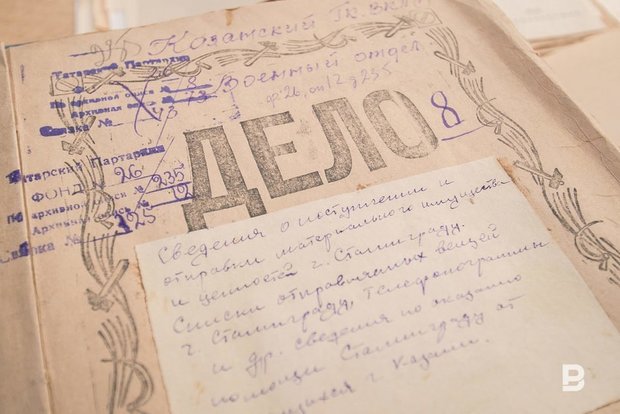 Казанский Гк. ВКП(б)
Военный отдел.
ф. 26, оп 12 д 255
Татарский Партархив
По архивной описи №
Архивная опись №
Связка №
ДЕЛО 8
Татарский Партархив
ФОНД № 26
По архивной описи № 235
Архивная опись № 12
Связка № 125
Сведения о поступлении и
отправки материального имущества
и ценностей г. Сталинграду.
Списки отправляемых вещей
г. Сталинграду, телефонограммы
и др. сведения по оказанию
помощи Сталинграду от
г. Казани.
B